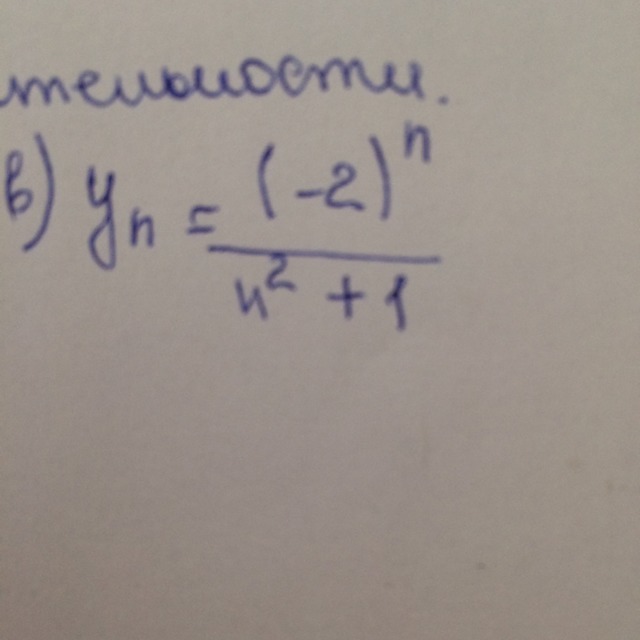 тельности.
в) yn = (-2)^n
n² + 1